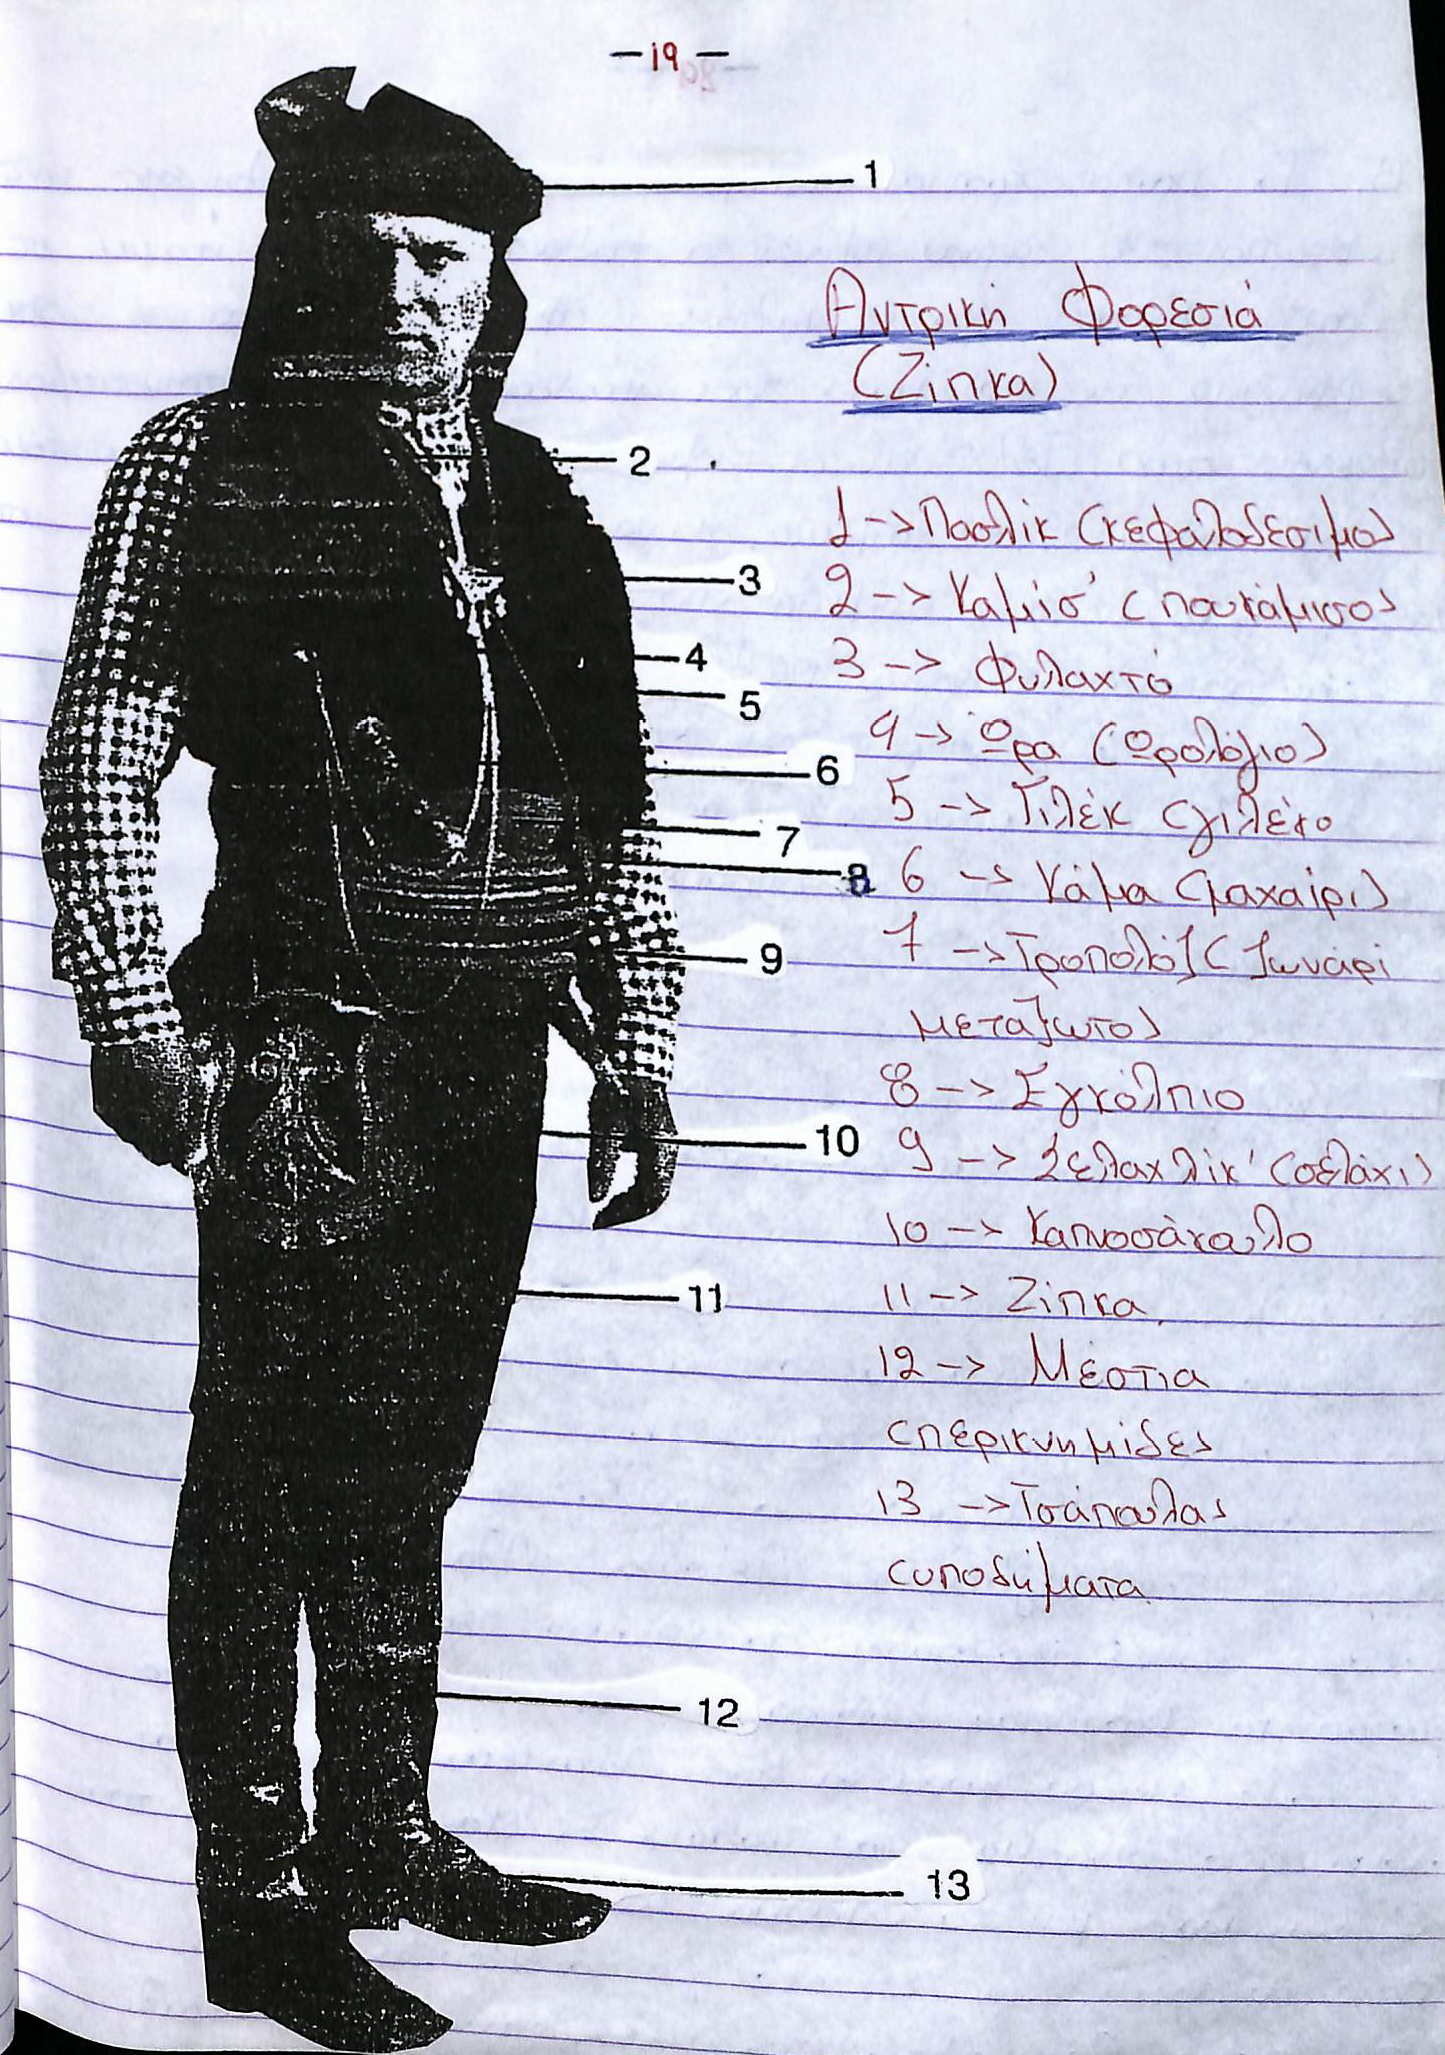 — 19 —
1
Αντρική Φορεσιά
(Ζίπκα)
2
1 -> Πασλίκ (κεφαλοδέσιμο)
3
2 -> Καμίσ' (πουκάμισο)
4
3 -> Φυλαχτό
5
4 -> Ώρα (Ωρολόγιο)
6
5 -> Γιλέκ (γιλέκο
7
8
6 -> Κάμα (μαχαίρι)
9
7 -> Τροπολόζ (ζωνάρι
μεταξωτό)
8 -> Εγκόλπιο
10
9 -> Σελαχλίκ' (σελάχι)
10 -> Καπνοσάκουλο
11
11 -> Ζίπκα
12 -> Μέστια
(περικνημίδες)
13 -> Τσάπουλας
(υποδήματα
12
13